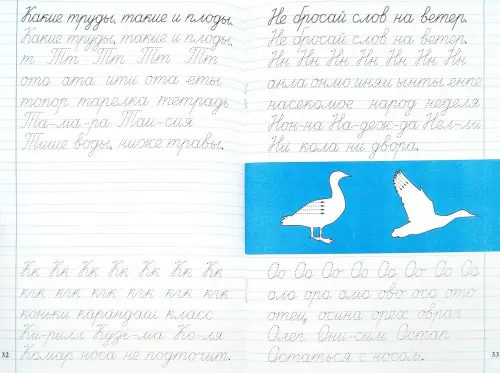 Какие труды, такие и плоды.
Какие труды, такие и плоды.
т Тт Тт Тт Тт Тт
ото ата ити ота еты
топор тарелка тетрадь
Та-ма-ра Таи-сия
Тише воды, ниже травы.
Кк Кк Кк Кк Кк Кк Кк
кгк кгк кгк кгк кгк кгк кгк
коньки карандаш класс
Ки-рилл Кузь-ма Ко-ля
Комар носа не подточит.
32
Не бросай слов на ветер.
Не бросай слов на ветер.
Нн Нн Нн Нн Нн Нн Нн
анла онмо иняи ынты енпе
насекомое народ неделя
Нон-на На-деж-да Нел-ли
Ни кола ни двора.
Оо Оо Оо Оо Оо Оо Оо Оо
оло оро омо ово осо ото
отец осина орех овраг
Олег Они-сим Остап
Остаться с носом.
33